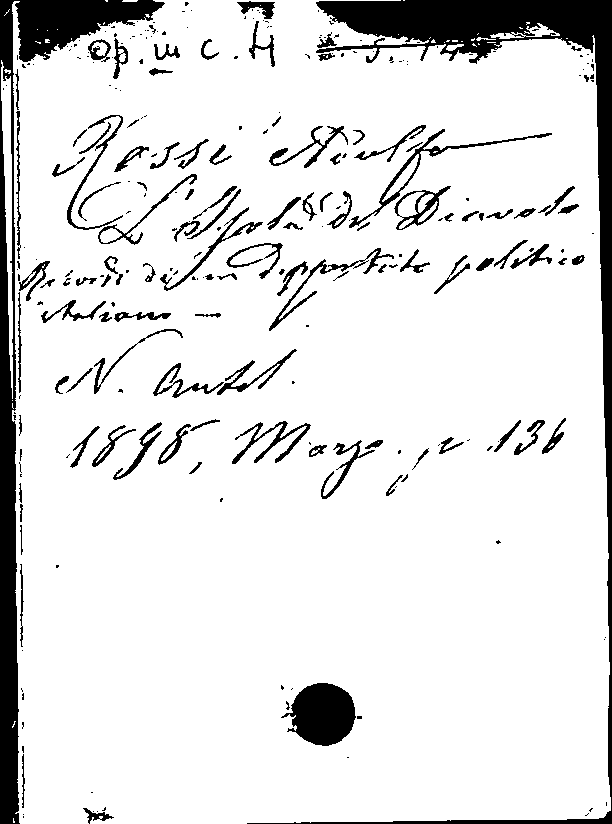 op. III C. H 5. 145
Rossi Adolfo
L'Isola del Diavolo
Ricordi di un deportato politico
italiano —
N. Antol.
1898, Marzo. p 136